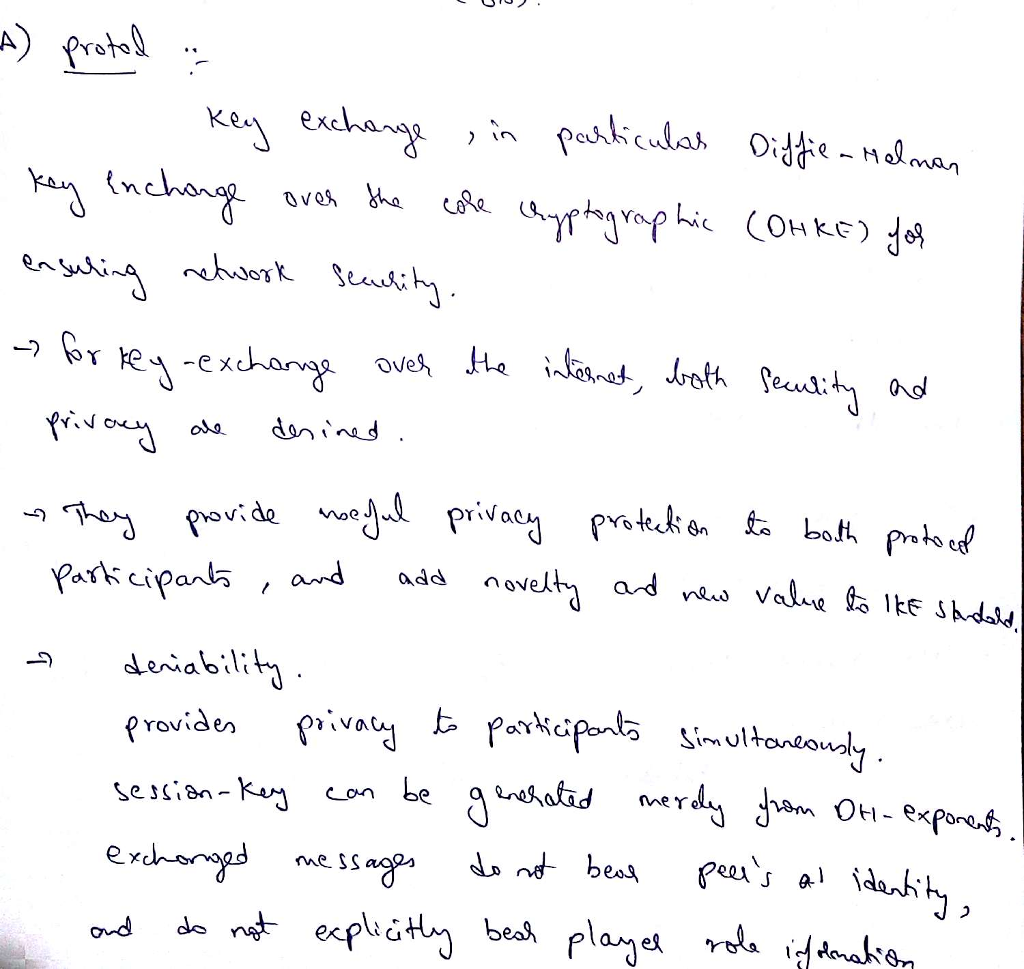 A) protol :-
Key exchange, in particular Diffie-Helman
Key Enchange over the core cryptographic (DHKE) for
ensuring network security.
→ for key-exchange over the internet, both security and
privacy are desired.
→ They provide useful privacy protection to both protocol
participants, and add novelty and new value to IKE standard.
→ deniability.
provides privacy to participants simultaneously.
session-key can be generated merely from DH-exponents.
exchanged messages do not bear peer's identity,
and do not explicitly bear player role information